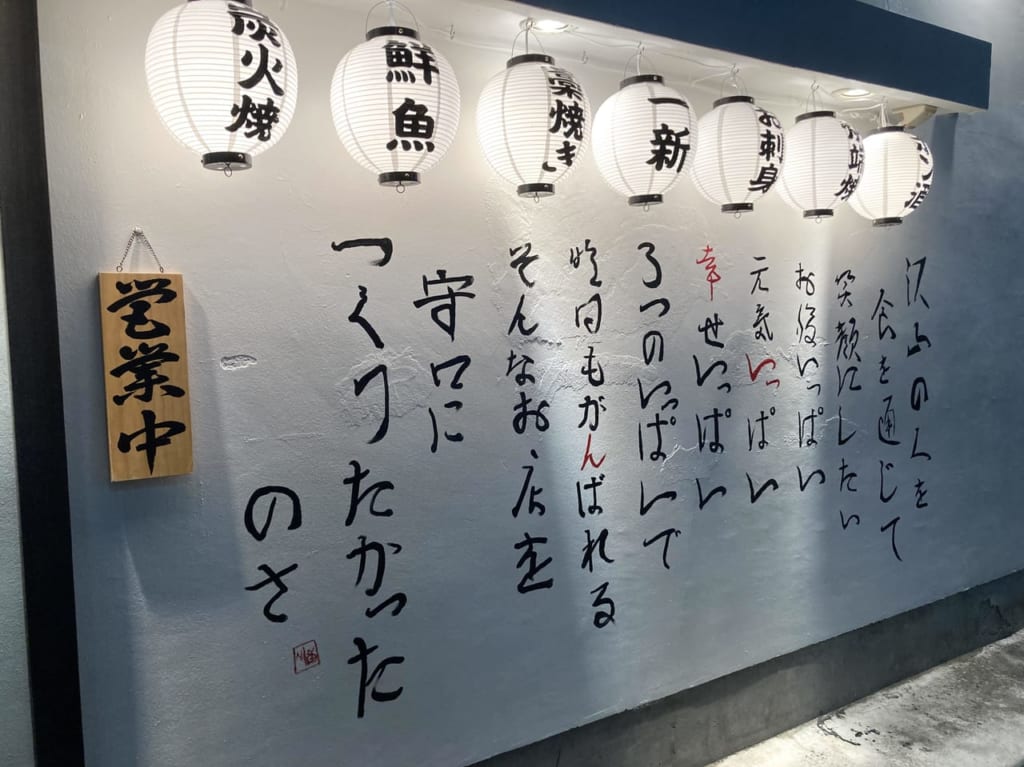 お刺身
一新
藁焼き
鮮魚
炭火焼
沢山の人を
食を通じて
笑顔にしたい
お腹いっぱい
元気いっぱい
幸せいっぱい
3つのいっぱいで
明日もがんばれる
そんなお店を
守口に
つくりたかった
のさ
営業中